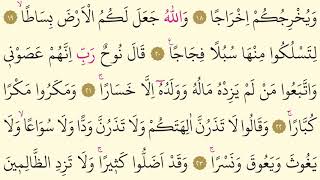 وَيُخْرِجُكُمْ اِخْرَاجًا ﴿١٨﴾ وَاللّٰهُ جَعَلَ لَكُمُ الْاَرْضَ بِسَاطًاۙ ﴿١٩﴾
لِتَسْلُكُوا مِنْهَا سُبُلًا فِجَاجًا۟ ﴿٢٠﴾ قَالَ نُوحٌ رَبِّ اِنَّهُمْ عَصَوْن۪ي
وَاتَّبَعُوا مَنْ لَمْ يَزِدْهُ مَالُهُ وَوَلَدُهُٓ اِلَّا خَسَارًاۚ ﴿٢١﴾ وَمَكَرُوا مَكْرًا
كُبَّارًاۚ ﴿٢٢﴾ وَقَالُوا لَا تَذَرُنَّ اٰلِهَتَكُمْ وَلَا تَذَرُنَّ وَدًّا وَلَا سُوَاعًاۙ وَلَا
يَغُوثَ وَيَعُوقَ وَنَسْرًاۚ ﴿٢٣﴾ وَقَدْ اَضَلُّوا كَث۪يرًاۚ وَلَا تَزِدِ الظَّالِم۪ينَ